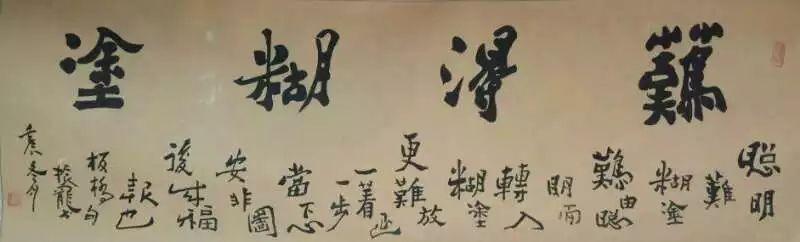 難得糊塗
聰明
難
糊塗
難由聰
明而
轉入
糊塗
更難放
一著退
一步
當下心
安非圖
後來福
報也
板橋句
振龍